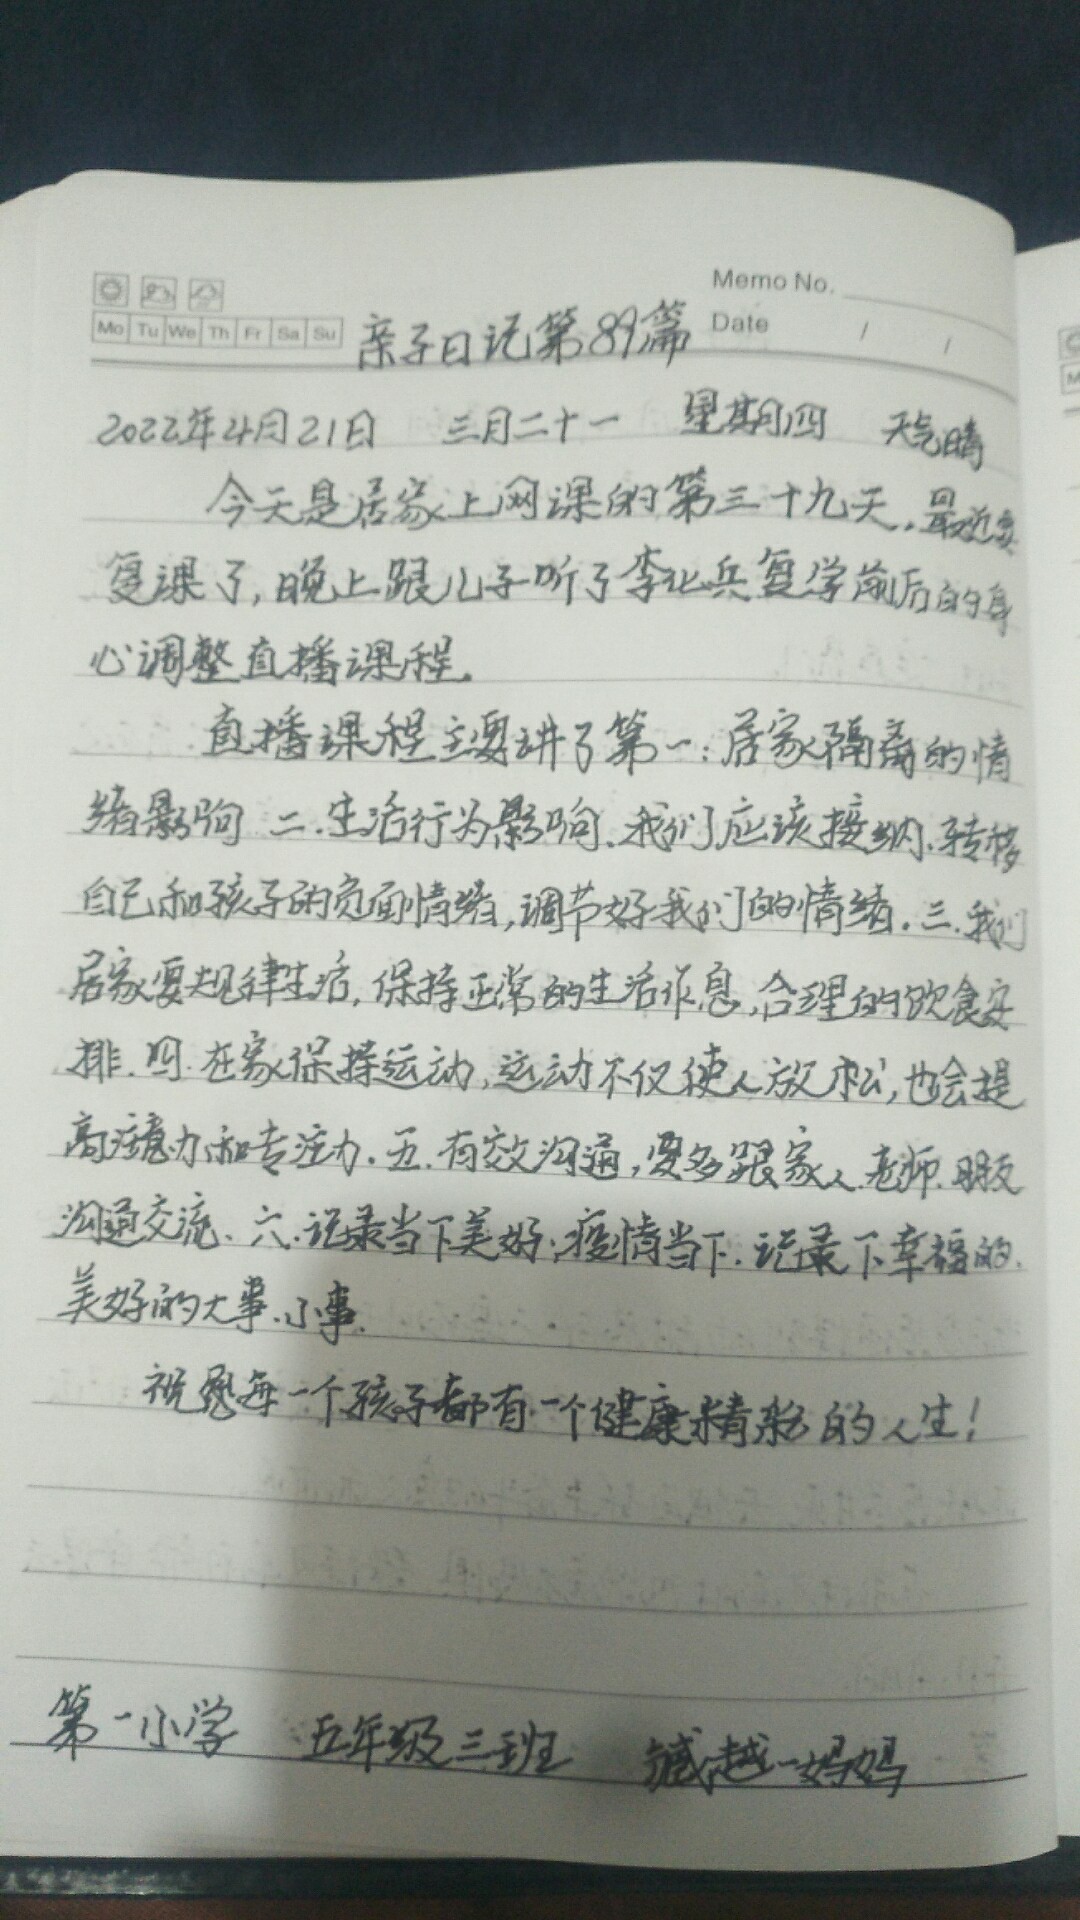 Memo No.
Mo Tu We Th Fr Sa Su
Date / /
亲子日记第89篇
2022年4月21日 三月二十一 星期四 天气晴
今天是居家上网课的第三十九天,最近要
复课了,晚上跟儿子听了李化兵复学前后的身
心调整直播课程.
直播课程主要讲了第一:居家隔离的情
绪影响 二.生活行为影响.我们应该接纳.转移
自己和孩子的负面情绪,调节好我们的情绪.三.我们
居家要规律生活,保持正常的生活作息,合理的饮食安
排.四.在家保持运动,运动不仅使人放松,也会提
高注意力和专注力.五.有效沟通,要多跟家人.老师.朋友
沟通交流.六.记录当下美好.疫情当下.记录下幸福的.
美好的大事.小事.
祝愿每一个孩子都有一个健康精彩的人生!
第一小学 五年级三班 越一妈妈